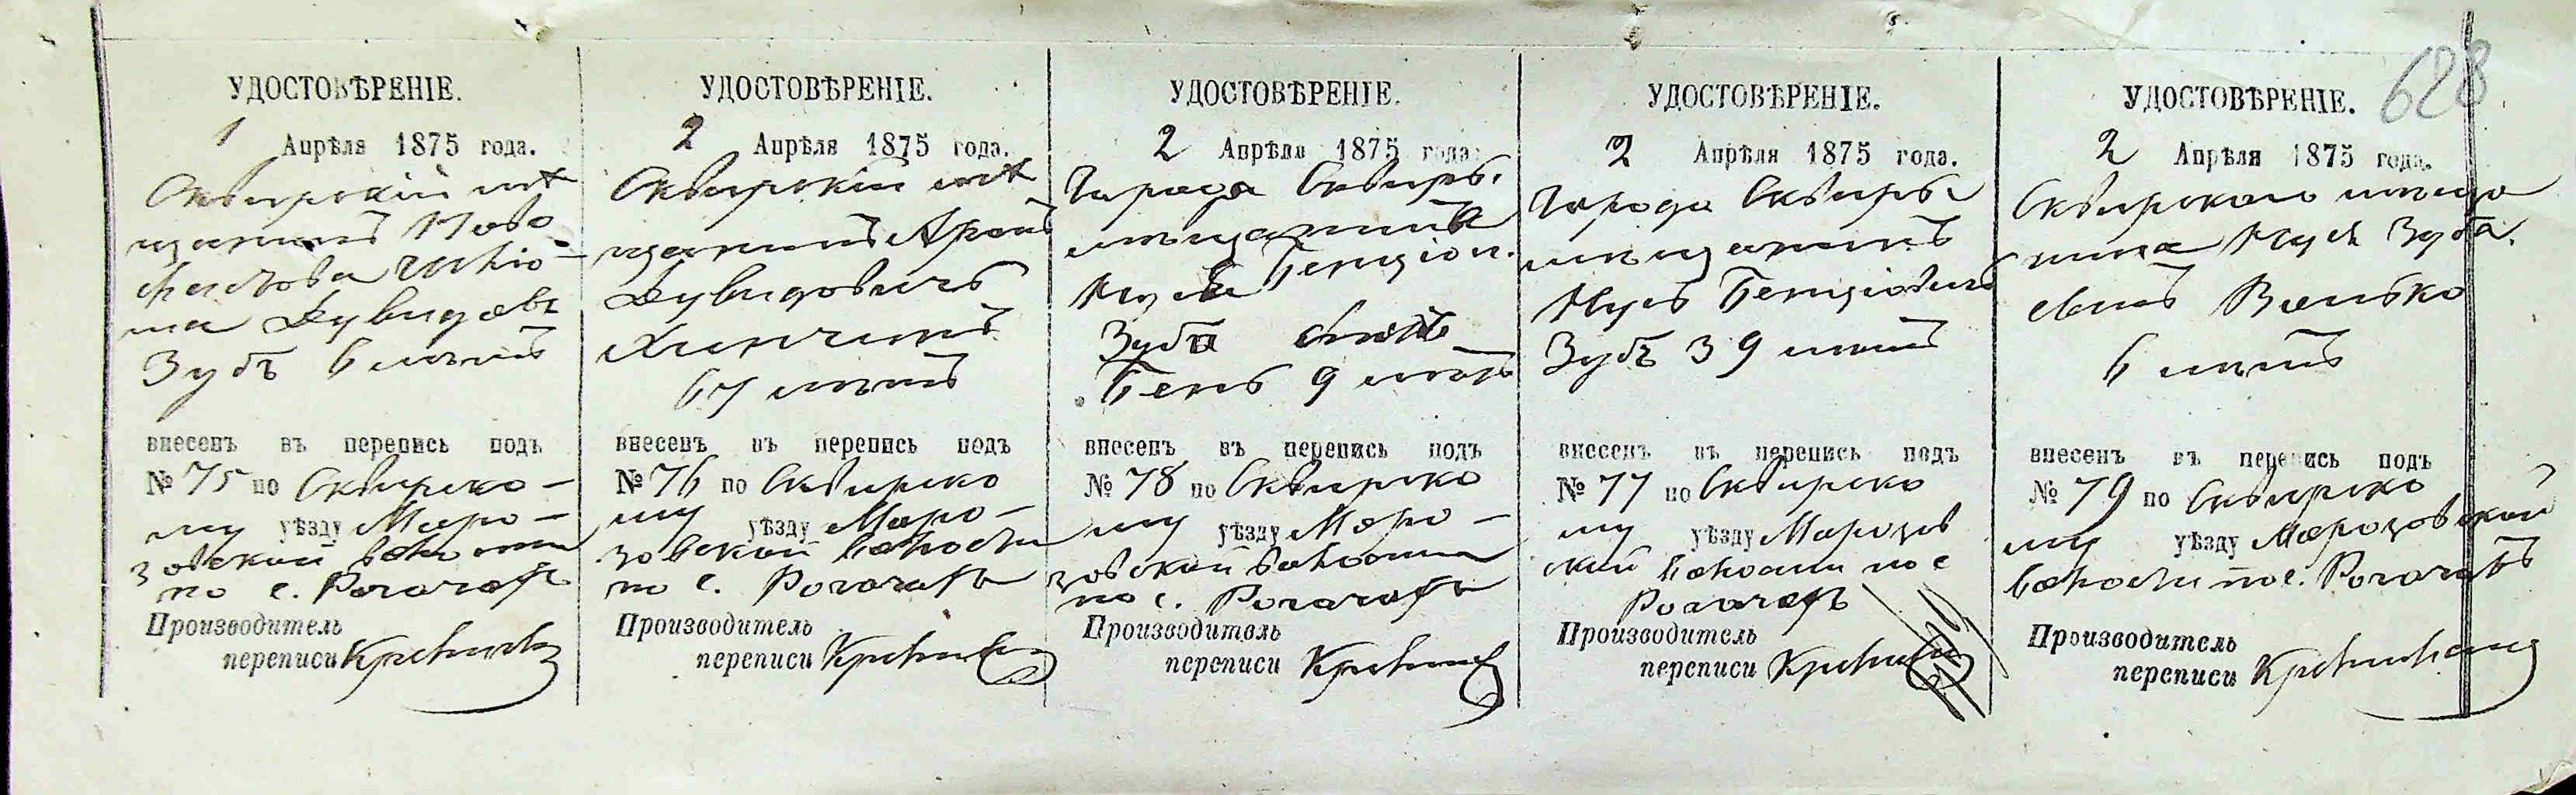 628
УДОСТОВѢРЕНІЕ.
1 Апрѣля 1875 года.
Сквирскій мѣ
щанинъ
Дувидов
Зубъ 6 лѣтъ
внесенъ въ перепись подъ
№ 75 по Сквирско-
му уѣзду Моро-
зовской волости
по с. Рогачахъ
Производитель
переписи
УДОСТОВѢРЕНІЕ.
2 Апрѣля 1875 года.
Сквирскій мѣ
щанинъ Аронъ
Дувидовичъ
67 лѣтъ
внесенъ въ перепись подъ
№ 76 по Сквирско
му уѣзду Моро-
зовской волости
по с. Рогачахъ
Производитель
переписи
УДОСТОВѢРЕНІЕ.
2 Апрѣля 1875 года.
Города Сквиры
мѣщанина
Нуся Бенціон.
Зуба сынъ
Бень 9 лѣтъ
внесенъ въ перепись подъ
№ 78 по Сквирско
му уѣзду Моро-
зовской волости
по с. Рогачахъ
Производитель
переписи
УДОСТОВѢРЕНІЕ.
2 Апрѣля 1875 года.
Города Сквиры
мѣщанинъ
Нусь Бенціовичъ
Зубъ 39 лѣтъ
внесенъ въ перепись подъ
№ 77 по Сквирско
му уѣзду Морозов
ской волости по с
Рогачахъ
Производитель
переписи
УДОСТОВѢРЕНІЕ.
2 Апрѣля 1875 года.
Сквирскаго мѣща
нина Нуся Зуба
сынъ Волько
6 лѣтъ
внесенъ въ перепись подъ
№ 79 по Сквирско
му уѣзду Морозовской
волости по с. Рогачахъ
Производитель
переписи